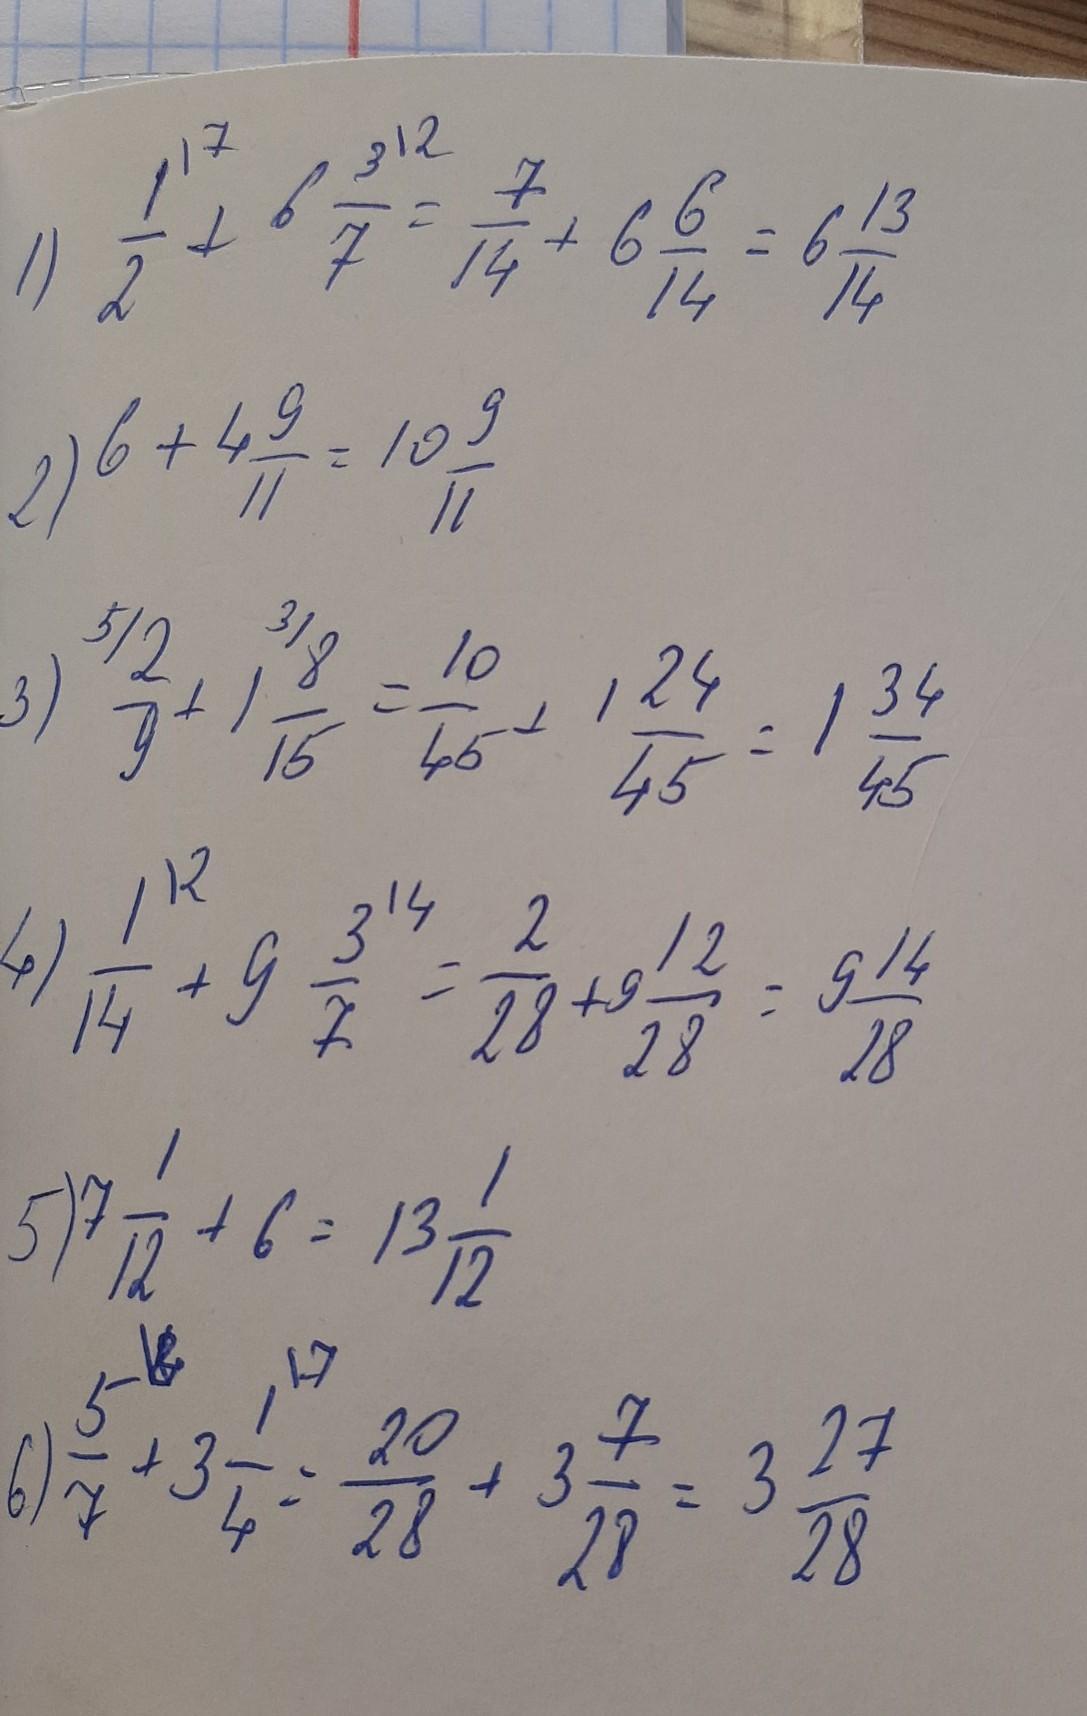 1) 1/2 \7 + 6 3/7 \2 = 7/14 + 6 6/14 = 6 13/14
2) 6 + 4 9/11 = 10 9/11
3) 5/ 2/9 + 1 3/ 8/15 = 10/45 + 1 24/45 = 1 34/45
4) 1/14 \2 + 9 3/7 \4 = 2/28 + 9 12/28 = 9 14/28
5) 7 1/12 + 6 = 13 1/12
6) 5/7 + 3 1/4 \7 = 20/28 + 3 7/28 = 3 27/28